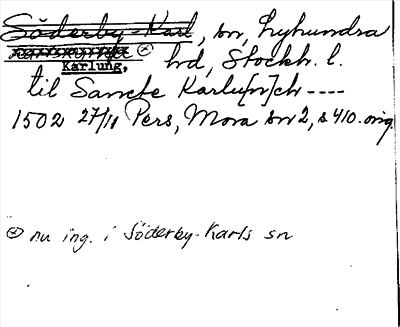 Söderby-Karl, sn, Lyhundra
Karlung, ⊗ hd, Stockh. l.
til Sancte Karlu[n]ch ----
1502 27/11 Pers, Mora sn 2, s 410. orig.
⊗ nu ing. i Söderby-Karls sn